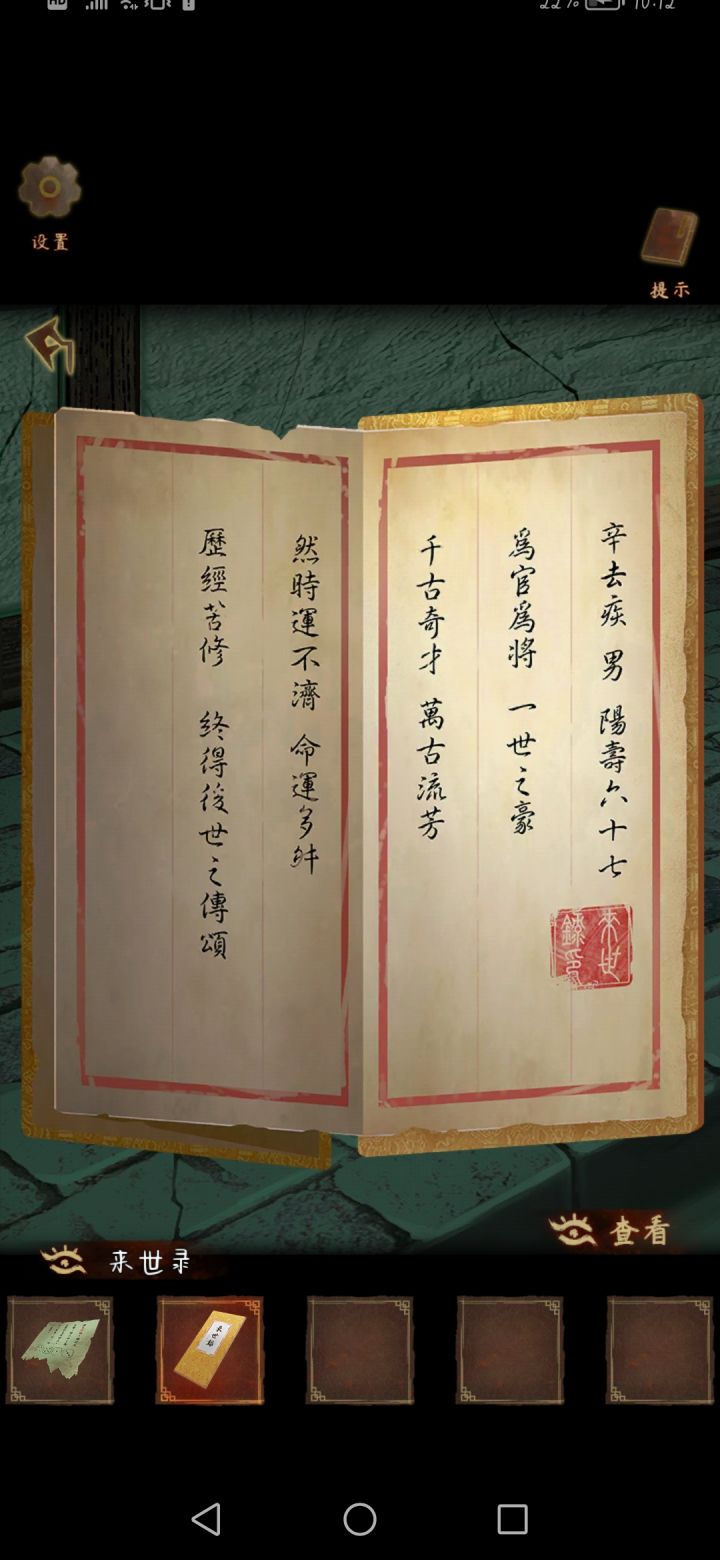 22% 10:12
设置
提示
辛去疾 男 陽壽六十七
爲官爲將 一世之豪
千古奇才 萬古流芳
然時運不濟 命運多舛
歷經苦修 終得後世之傳頌
來世
錄印
查看
来世录
來世錄